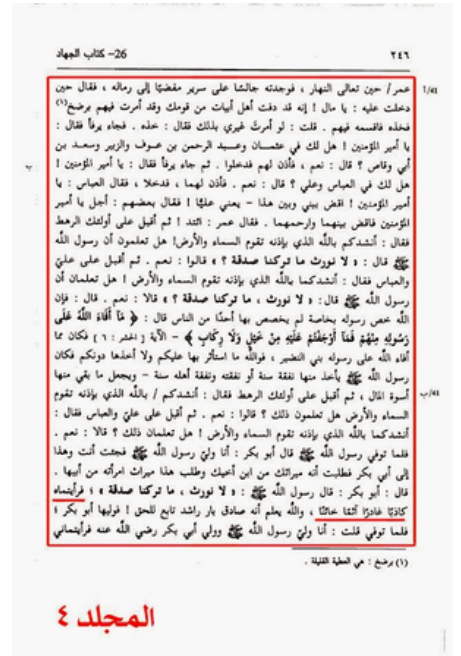 ٢٤٦
26- كتاب الجهاد
١/٤١ عمر / حين تعالى النهار ، فوجدته جالسًا على سرير مفضيًا إلى رماله ، فقال حين
دخلت عليه : يا مال ! إنه قد دفت أهل أبيات من قومك وقد أمرت فيهم برضخ(١)
فخذه فاقسمه فيهم . قلت : لو أمرت غيري بذلك فقال : خذه . فجاء يرفأ فقال :
يا أمير المؤمنين ! هل لك في عثمــان وعبــد الرحمن بن عــوف والزبير وسعــد بن
أبي وقاص ؟ قال : نعم ، فأذن لهم فدخلوا . ثم جاء يرفأ فقال : يا أمير المؤمنين !
هل لك في العباس وعلي ؟ قال : نعم . فأذن لهما ، فدخلا ، فقال العباس : يا
أمير المؤمنين ! اقض بيني وبين هذا – يعني عليًّا ! فقال بعضهم : أجل يا أمير
المؤمنين فاقض بينهما وارحمهما . فقال عمر : ائتد ! ثم أقبل على أولئك الرهط
فقال : أنشدكم بالله الذي بإذنه تقوم السماء والأرض! هل تعلمون أن رسول الله
ﷺ قال : « لا نورث ما تركنا صدقة ؟ » قالوا : نعم . ثم أقبل على عليّ
والعباس فقال : أنشدكما بالله الذي بإذنه تقوم السماء والأرض ! هل تعلمان أن
رسول الله ﷺ قال : « لا نورث ، ما تركنا صدقة ؟ » قالا : نعم . قال : فإن
الله خص رسوله بخاصة لم يخصص بها أحدًا من الناس قال : ﴿ مَّآ أَفَآءَ اللَّهُ عَلَى
رَسُولِهِ مِنْهُمْ فَمَآ أَوْجَفْتُمْ عَلَيْهِ مِنْ خَيْلٍ وَلَا رِكَابٍ ﴾ – الآية [ الحشر : ٦ ] فكان مما
أفاء الله على رسوله بني النضير ، فوالله ما استأثر بها عليكم ولا أخذها دونكم فكان
رسول الله ﷺ يأخذ منها نفقة سنة أو نفقته ونفقة أهله سنة – ويجعل ما بقي منها
٤١/ب أسوة المال ، ثم أقبل على أولئك الرهط فقال : أنشدكم / بالله الذي بإذنه تقوم
السماء والأرض هل تعلمون ذلك ؟ قالوا : نعم . ثم أقبل على عليّ والعباس فقال :
أنشدكما بالله الذي بإذنه تقوم السماء والأرض ! هل تعلمان ذلك ؟ قالا : نعم .
فلما توفي رسول الله ﷺ قال أبو بكر : أنا وليّ رسول الله ﷺ فجئت أنت وهذا
إلى أبي بكر فطلبت أنه ميراثك من ابن أخيك وطلب هذا ميراث امرأته من أبيها .
قال : أبو بكر : قال رسول الله ﷺ : « لا نورث ، ما تركنا صدقة » ؛ فرأيتماه
كاذبًا غادرًا آثمًا خائنًا ، والله يعلم أنه صادق بار راشد تابع للحق ! فوليها أبو بكر ؛
فلما توفي قلت : أنا وليّ رسول الله ﷺ وولي أبي بكر رضي الله عنه فرأيتماني
(١) برضخ : هي العطية القليلة .
المجلد ٤